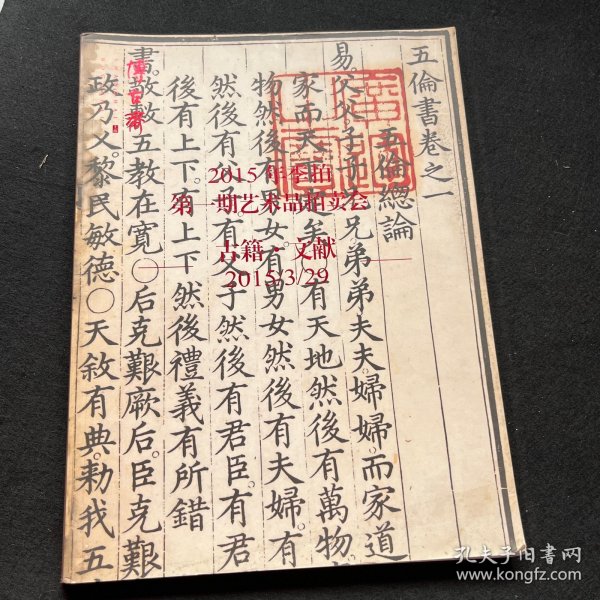 五倫書卷之一
五倫總論
易。父父子子兄兄弟弟夫夫。婦婦。而家道
家而天下定矣○有天地然後有萬物。
物然後有男女。有男女然後有夫婦。有
然後有父子。有父子然後有君臣。有君
後有上下。有上下然後禮義有所錯
書。敬敷五教在寬○后克艱厥后。臣克艱
政乃乂。黎民敏德○天敘有典。勑我五
博古斋
2015年季拍
第一期艺术品拍卖会
古籍·文献
2015/3/29
孔夫子旧书网
www.kongfz.com